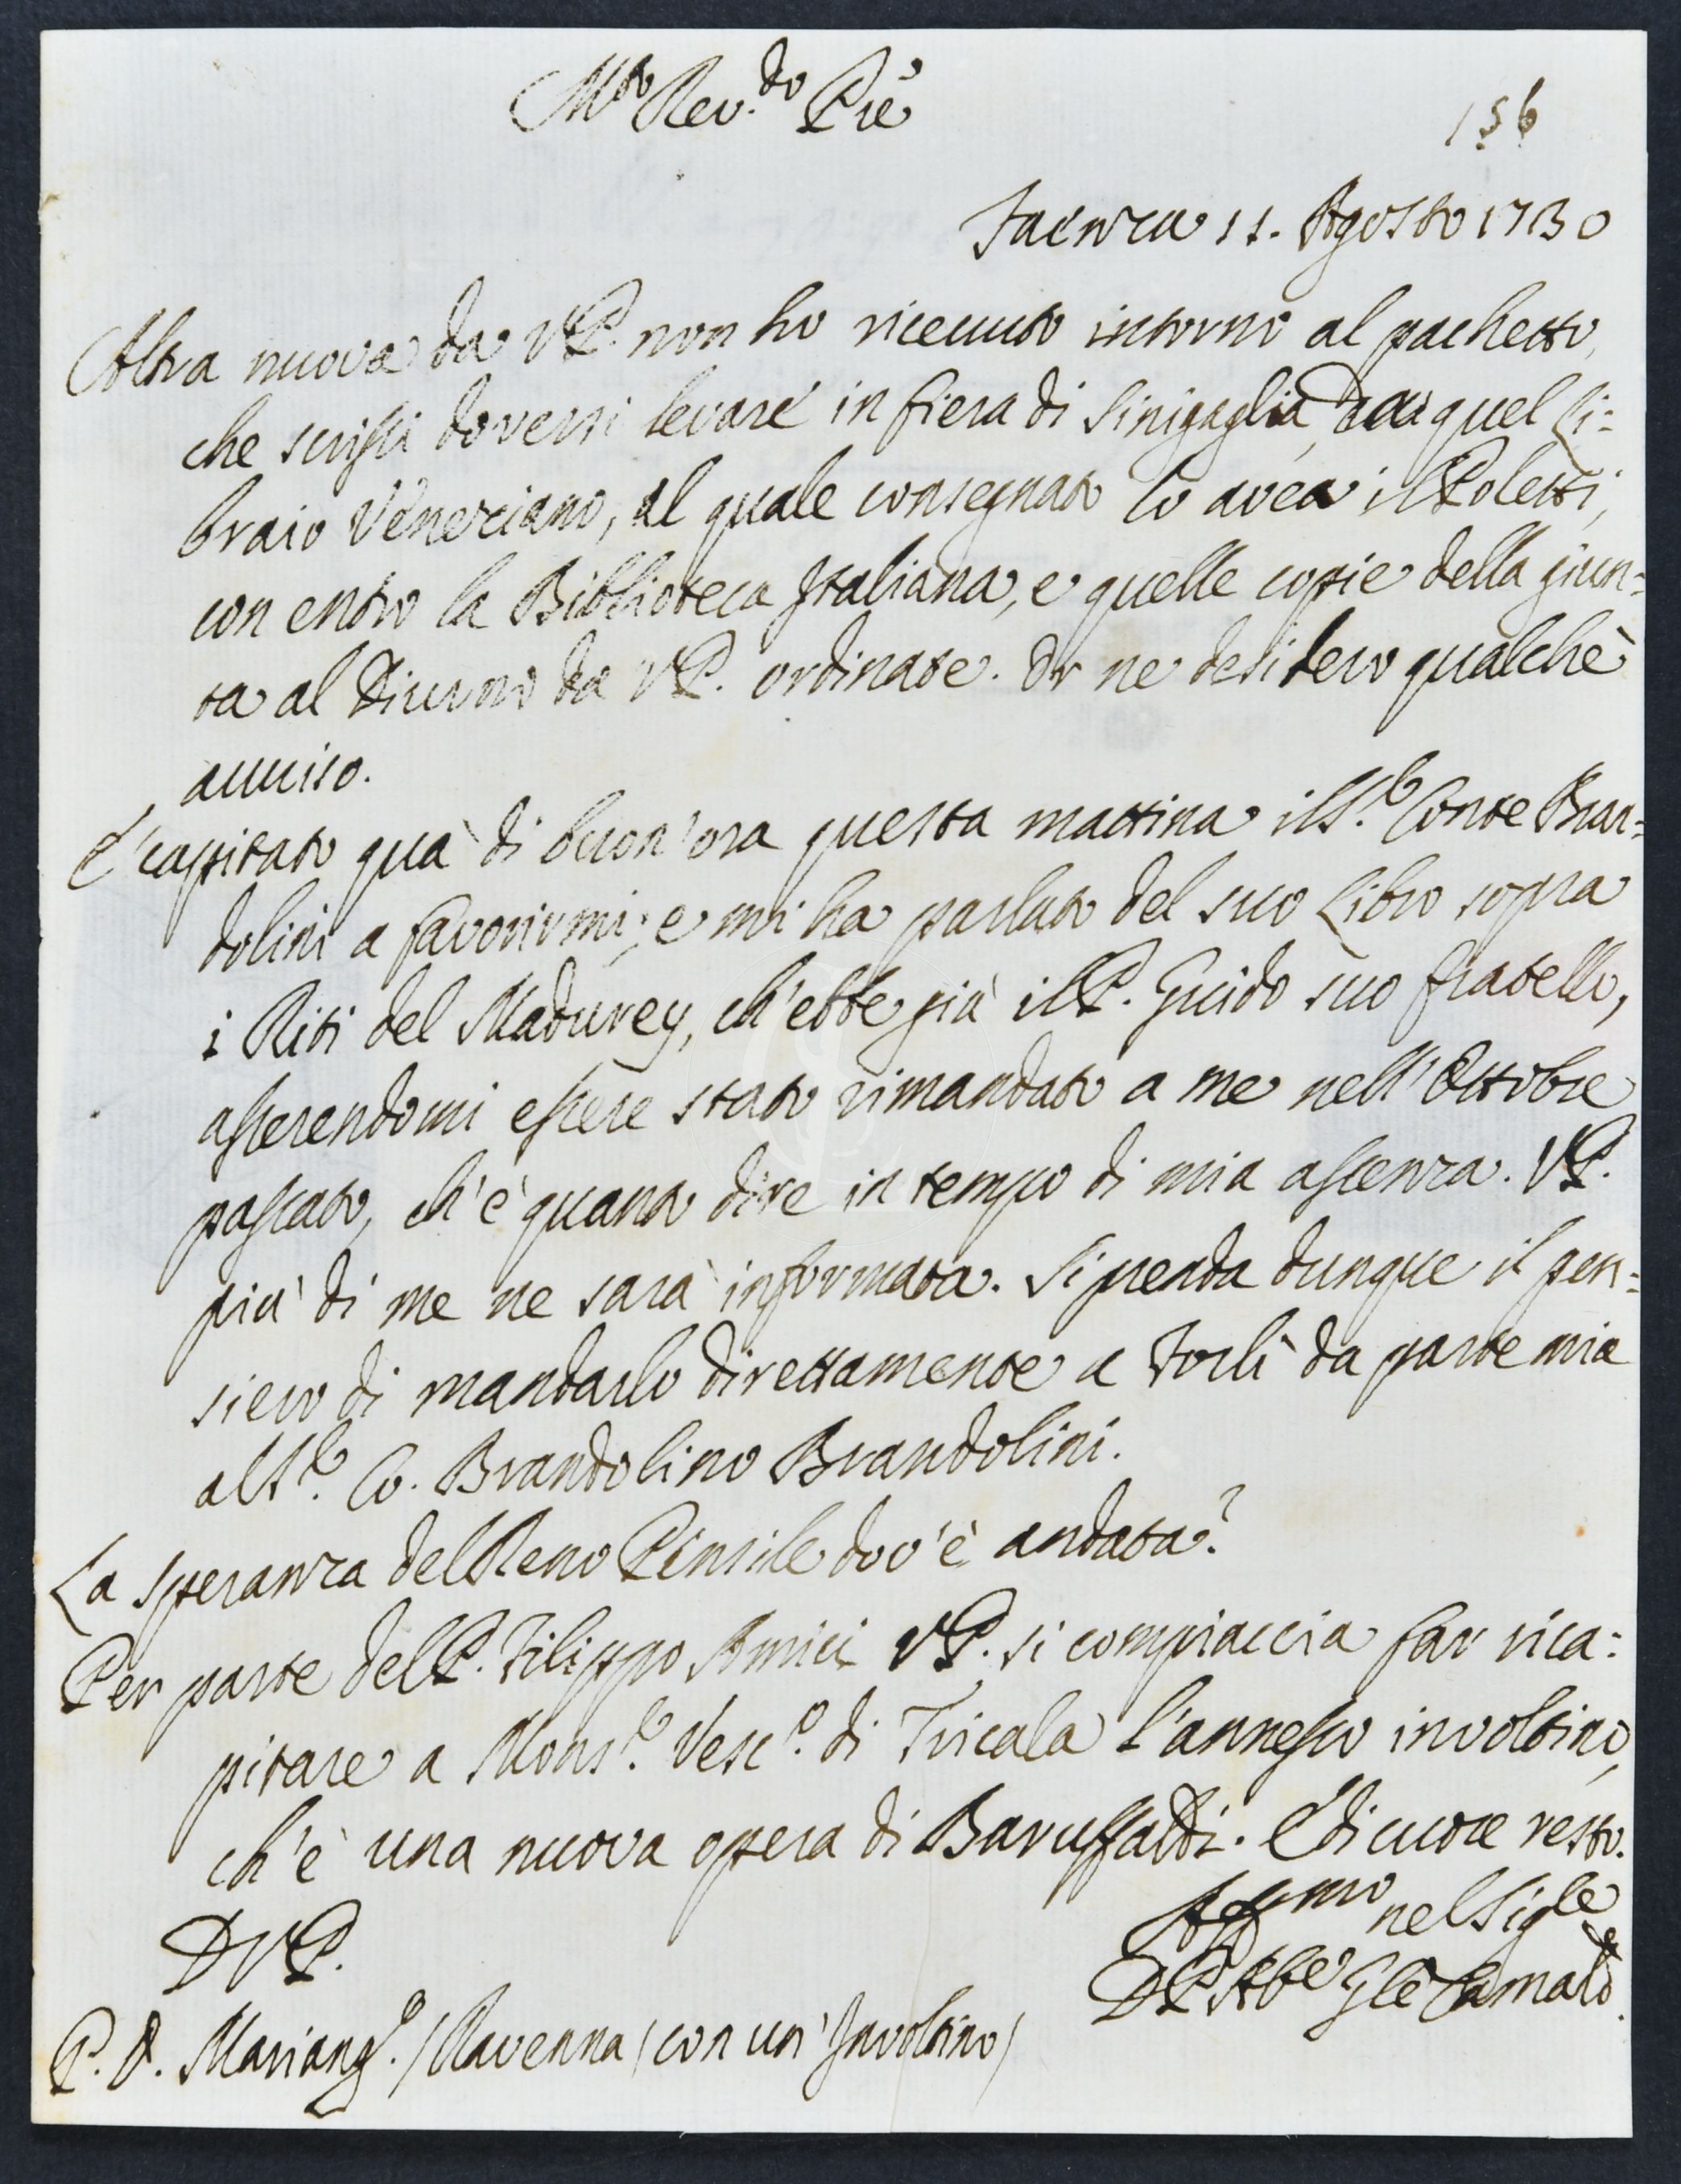 M.to Rev.do Pre
156
Faenza 11. Agosto 1730
Altra nuova da VP. non ho riceuuto intorno al pachetto,
che scrissi doversi levare in fiera di Sinigaglia, da quel Li=
braio Veneziano, al quale consegnato lo avea il Poletti,
con entro la Biblioteca Italiana, e quelle copie della giun=
ta al Diurno da VP. ordinate. Or ne desidero qualche
auuiso.
E' capitato quà di buon'ora questa mattina il S.r Conte Bran=
dolini a favorirmi; e mi ha parlato del suo Libro sopra
i Riti del Madurey, ch'ebbe già il P. Guido suo fratello,
asserendomi essere stato rimandato a me nell'Ottobre
passato, ch'è quanto dire in tempo di mia assenza. VP.
più di me ne sarà informata. Si prenda dunque il pen=
siero di mandarlo direttamente a Forlì da parte mia
al S.r Co. Brandolino Brandolini.
La speranza del Reno Pensile dov'è andata?
Per parte del P. Filippo Amici VP. si compiaccia far rica=
pitare a Mons.r Vesc.o di Tricala l'annesso involtino,
ch'è una nuova opera di Baruffaldi. E di cuore resto.
DVP.
Affmo nel Sig.re
D P Abe Gle Camald.
P. D. Mariang.o / Ravenna / con un' Involtino /